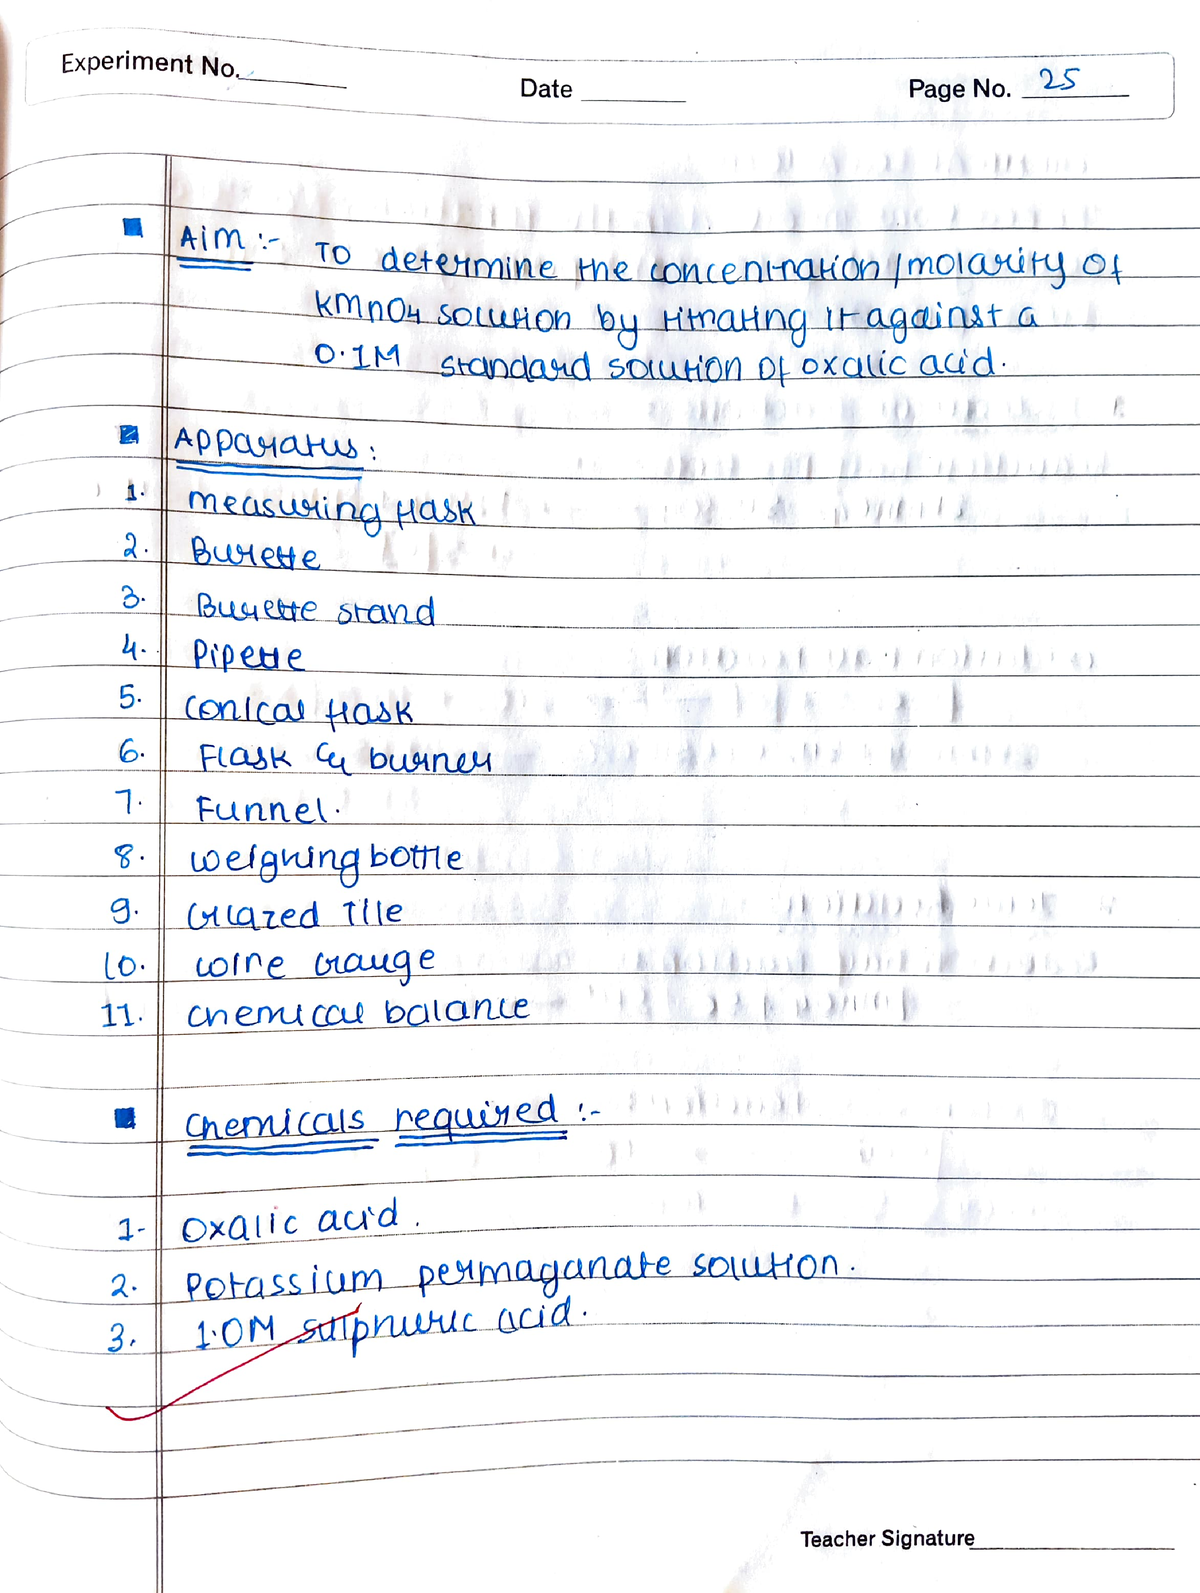 Experiment No.
Date
Page No. 25
Aim :- To determine the concentration/molarity of
KMnO4 solution by titrating it against a
0.1M standard solution of oxalic acid.
Apparatus :
1. measuring flask
2. Burette
3. Burette stand
4. Pipette
5. conical flask
6. Flask & burner
7. Funnel.
8. weighing bottle
9. Glazed Tile
10. wire Gauge
11. chemical balance
Chemicals required :-
1- Oxalic acid.
2. Potassium permaganate solution.
3. 1.0M sulphuric acid.
Teacher Signature